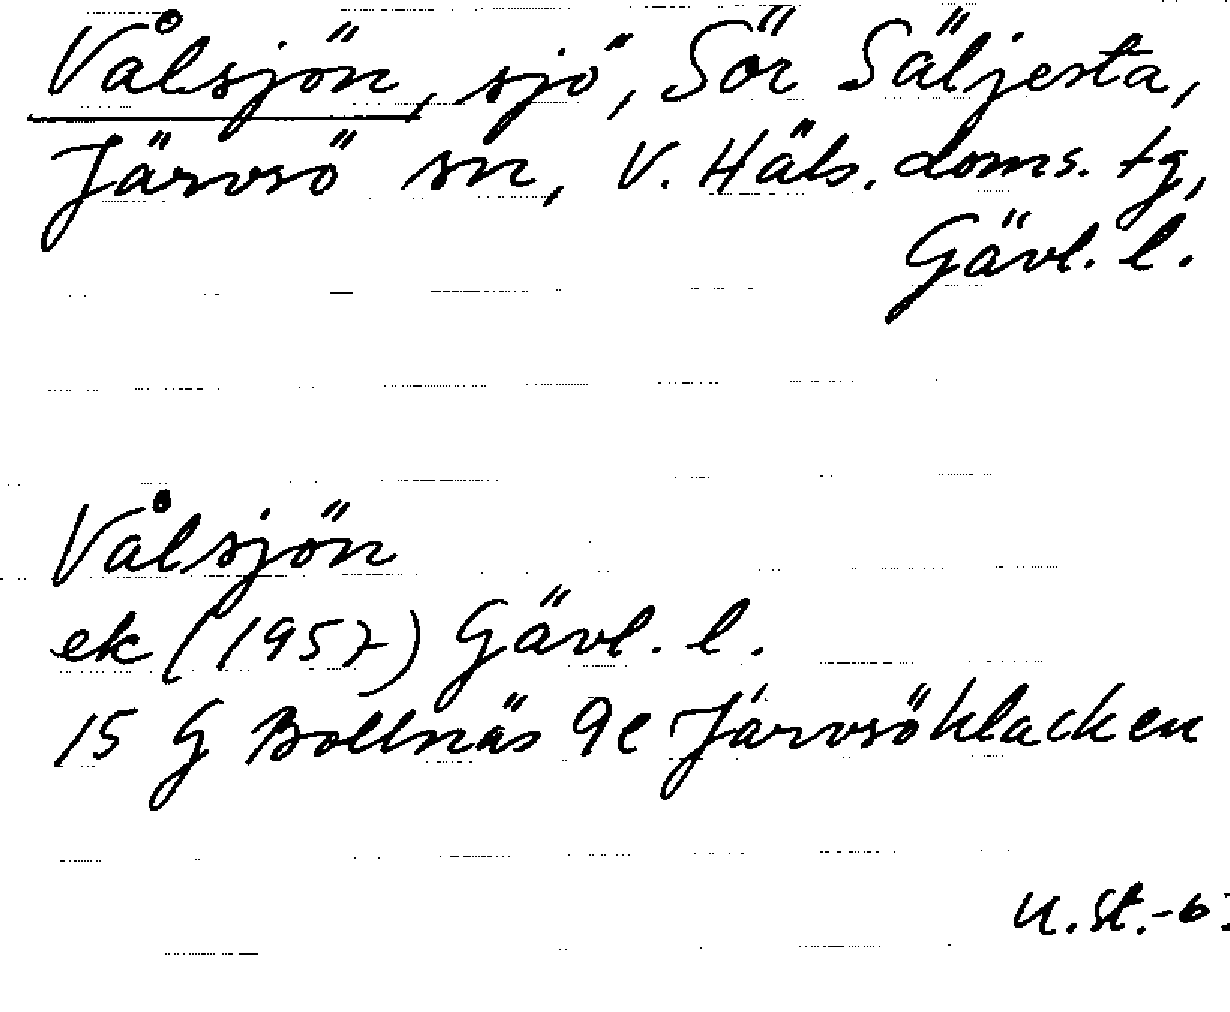 Vålsjön, sjö, Sör Säljesta,
Järvsö sn, V. Häls. doms. tg,
Gävl. l.
Vålsjön
ek (1957) Gävl. l.
15 G Bollnäs 9e Järvsöklacken
U.St.-6